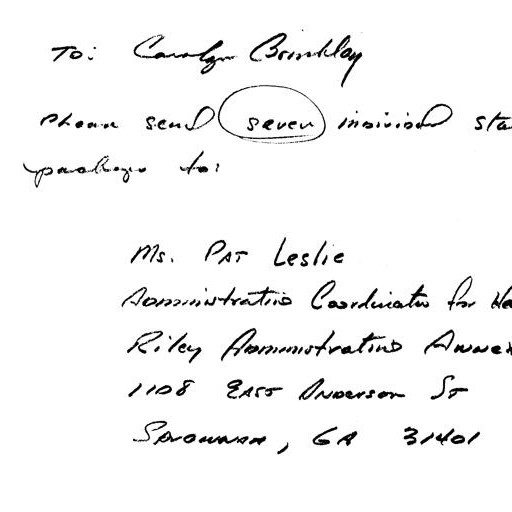 To: Carolyn Brinkley
Please send seven individual sta
packages to:
Ms. Pat Leslie
Administrative Coordinator for Hea
Riley Administrative Annex
1108 East Anderson St
Savannah, GA 31401